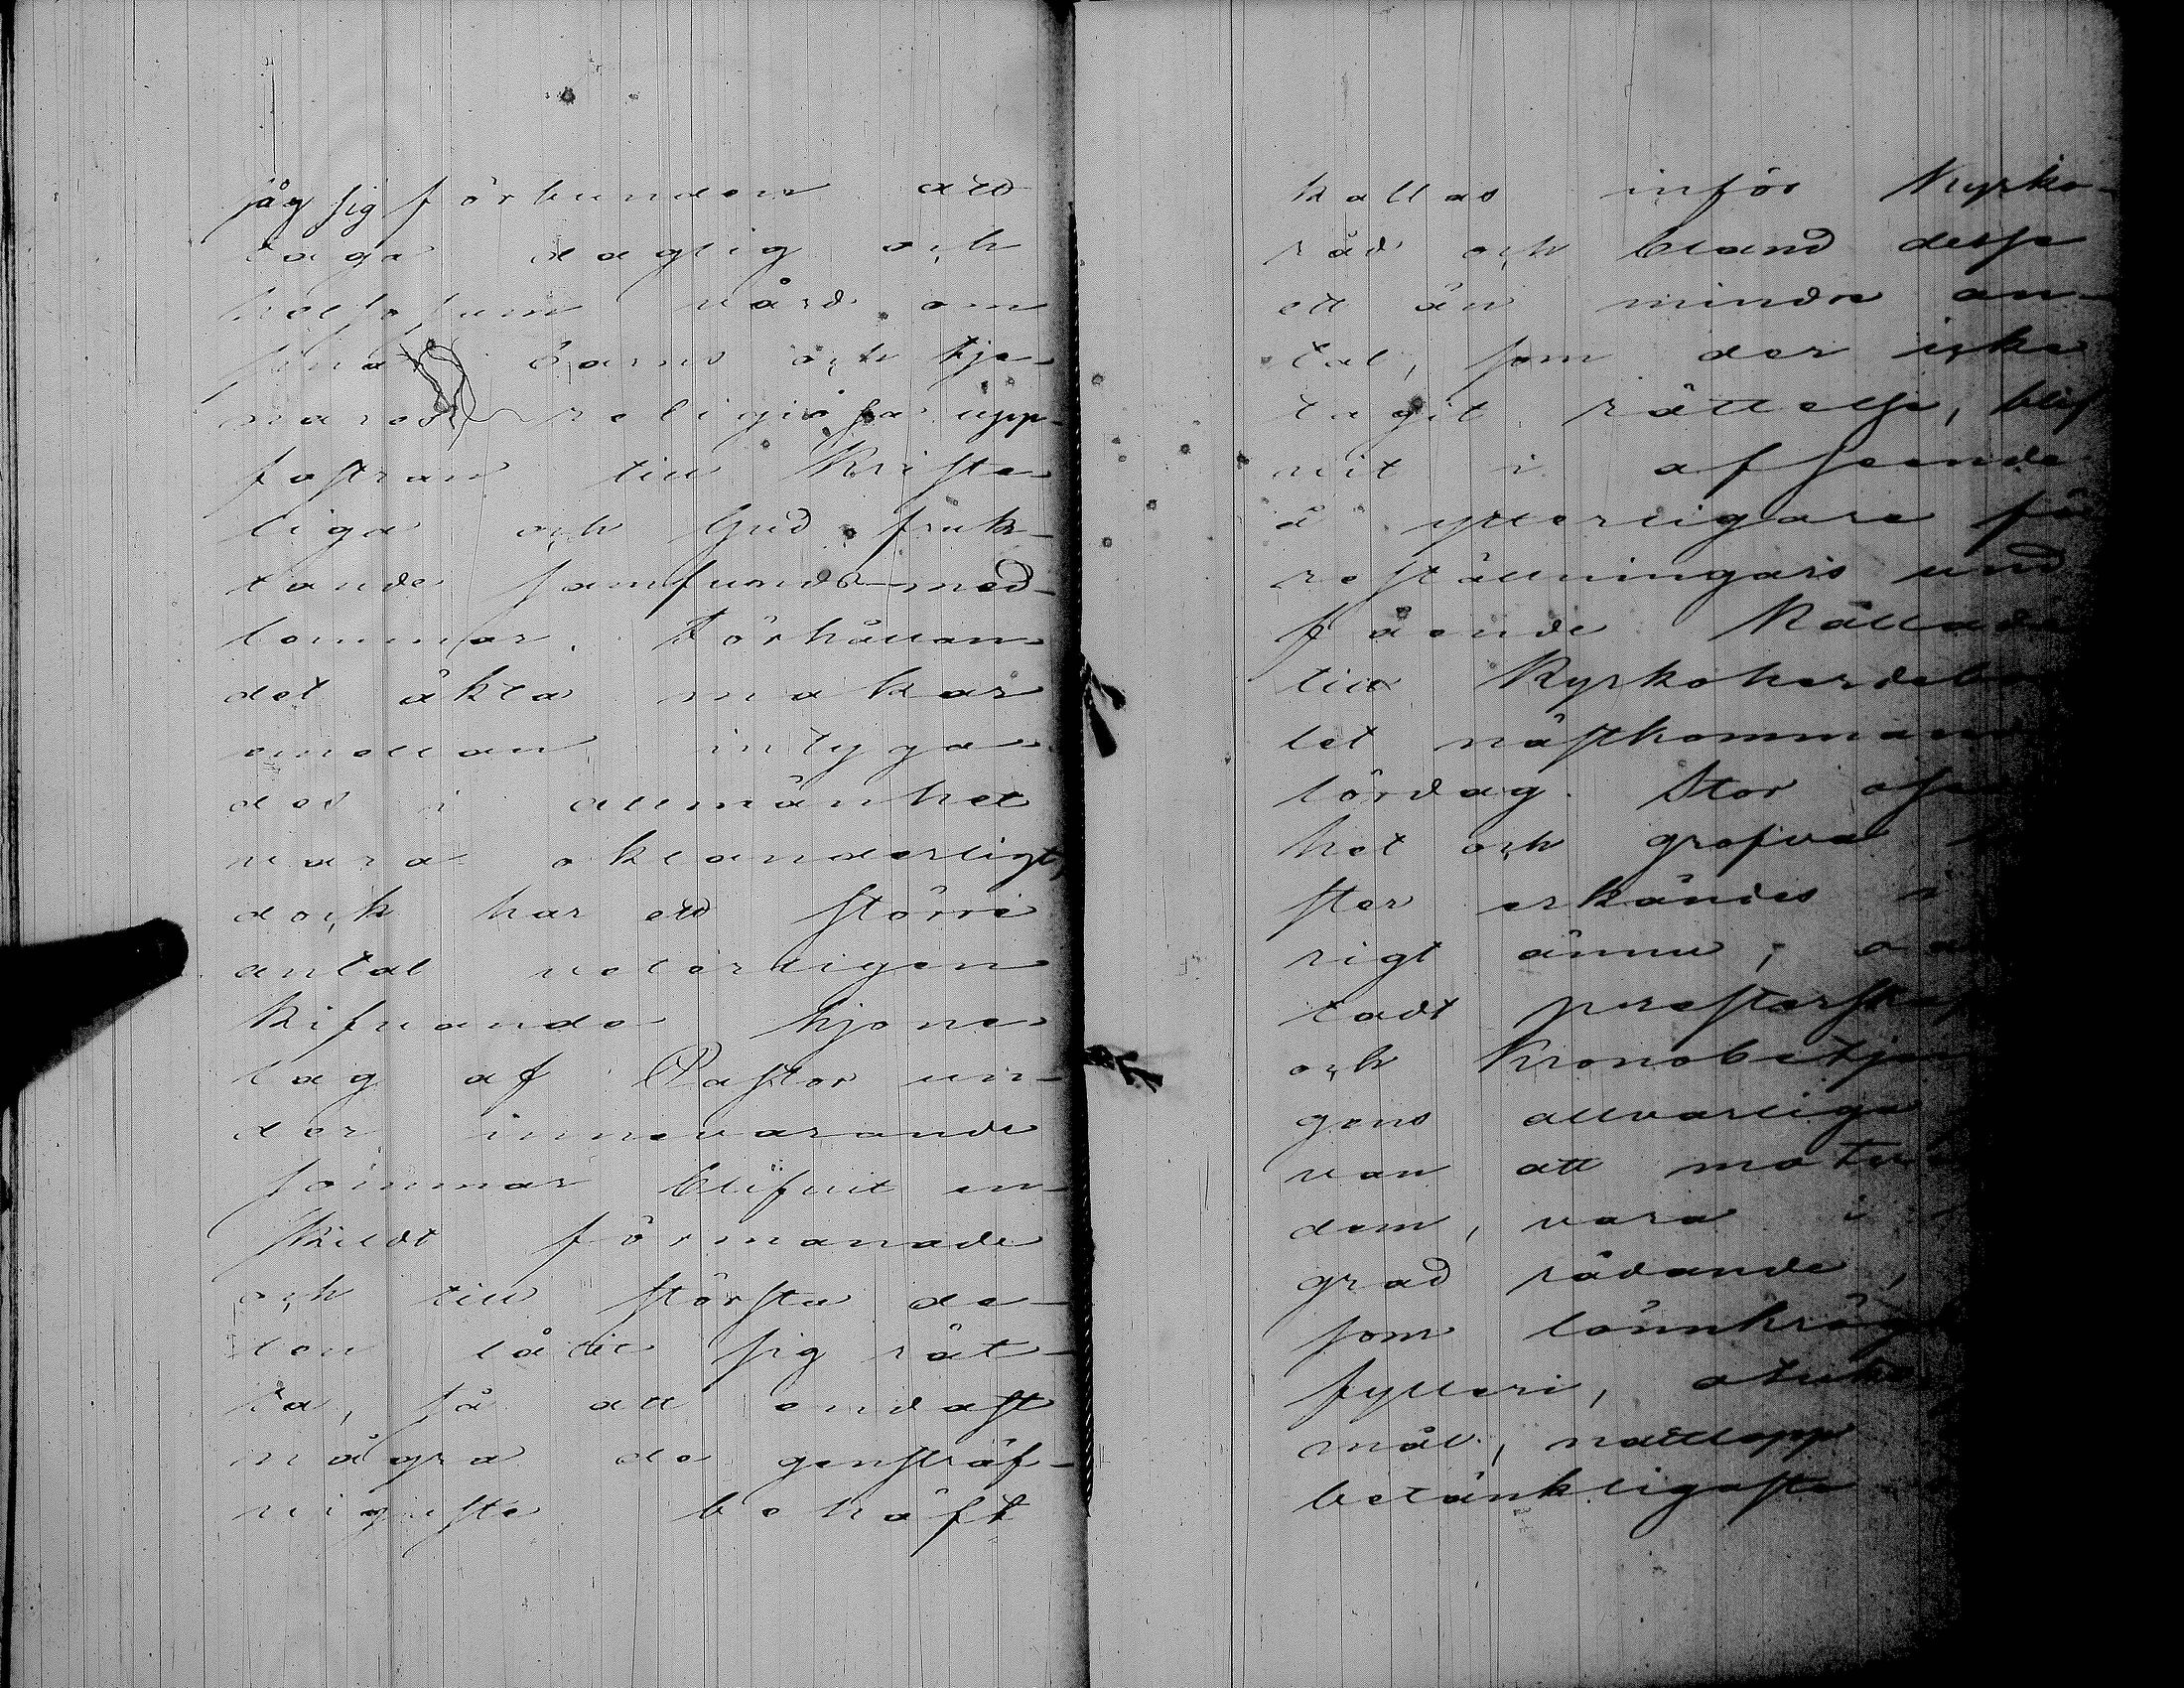 såg sig förbunden att
taga daglig och
helsosam vård om
sina barns och tje-
nares religiösa upp-
fostran till Kriste-
liga och Gud fruk-
tande samfunds med-
lemmar. Förhållan-
det äkta makar
emellan intyga-
des i allmänhet
vara oklanderligt,
dock har ett större
antal vetörligen
kifvande hjone-
lag af Pastor un-
der innevarande
sommar blifvit en-
skildt förmanade
och till största de-
len låtit sig rät-
ta, så att endast
några de gensträf-
vigaste behöft
kallas inför Kyrko-
råd och bland desse
ett än mindre an-
tal, som der icke
tagit rättelse, blif
vit i afseende
å ytterligare fö
reställningars und
fående kallade
till Kyrkoherdebo
let nästkommand
lördag. Stor
het och grofva
ster erkändes
rigt ännu,
tadt presterskap
och Kronobetjen
gens allvarliga
van att motver
dem, vara i
grad rådande,
som lönnkrög
fylleri, otukts
mål, nattlopp
betänkligaste